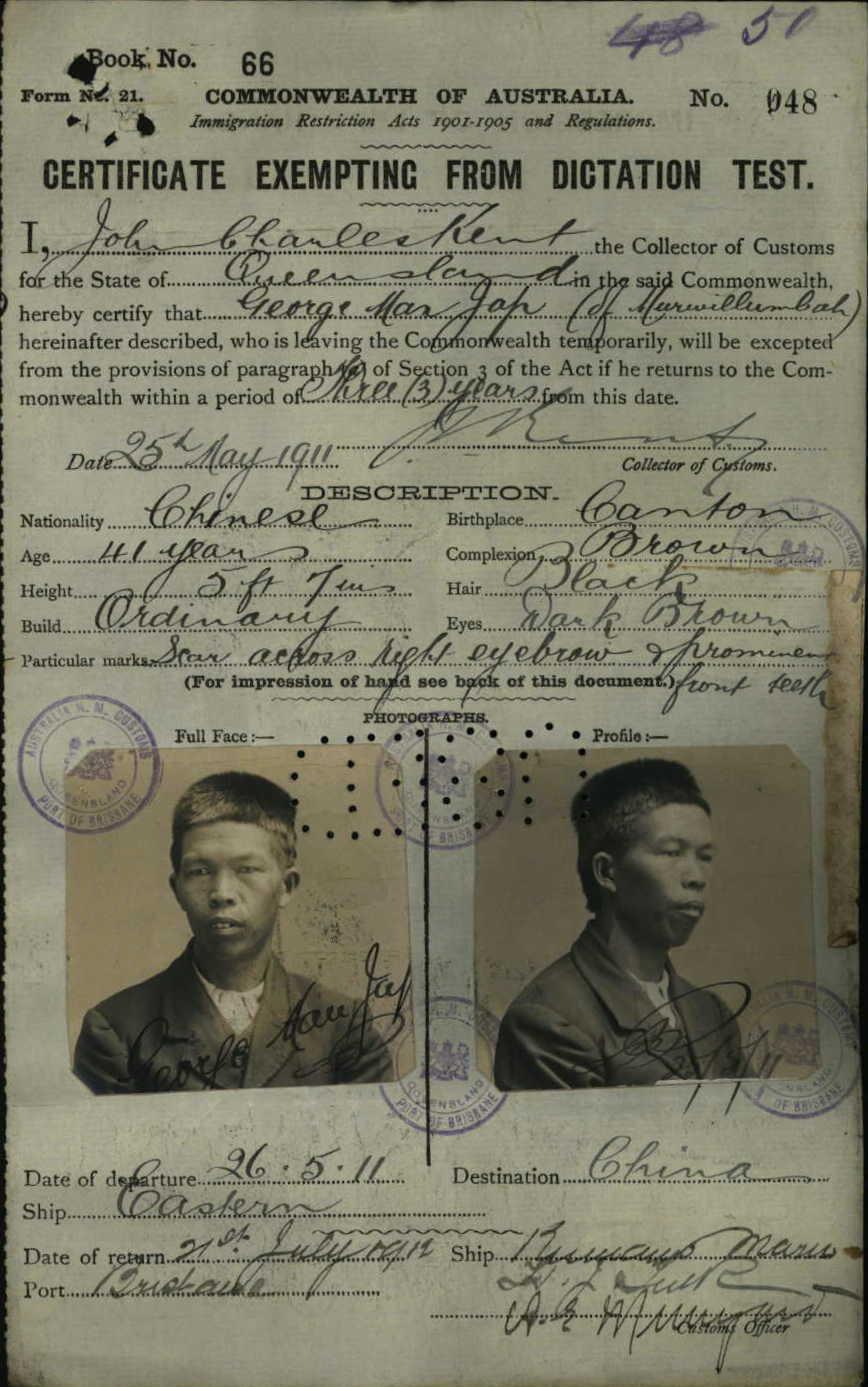 48 51
Book. No. 66
Form No. 21. COMMONWEALTH OF AUSTRALIA. No. 048
Immigration Restriction Acts 1901-1905 and Regulations.
CERTIFICATE EXEMPTING FROM DICTATION TEST.
I, John Charles Kent the Collector of Customs
for the State of Queensland in the said Commonwealth,
hereby certify that George Man Jap (of Murwillumbah)
hereinafter described, who is leaving the Commonwealth temporarily, will be excepted
from the provisions of paragraph (a) of Section 3 of the Act if he returns to the Com-
monwealth within a period of Three (3) years from this date.
Date 25th May 1911 Kent
Collector of Customs.
DESCRIPTION.
Nationality Chinese Birthplace Canton
Age 41 years Complexion Brown
Height 5 ft 7 ins Hair Black
Build Ordinary Eyes Dark Brown
Particular marks Scar across right eyebrow & prominent
(For impression of hand see back of this document.) front teeth
PHOTOGRAPHS.
Full Face:— Profile:—
AUSTRALIA H. M. CUSTOMS QUEENSLAND PORT OF BRISBANE
George Man Jap
QUEENSLAND PORT OF BRISBANE
Date of departure 26.5.11 Destination China
Ship Eastern
Date of return 21st July 1912 Ship Kumano Maru
Port Brisbane
Customs Officer